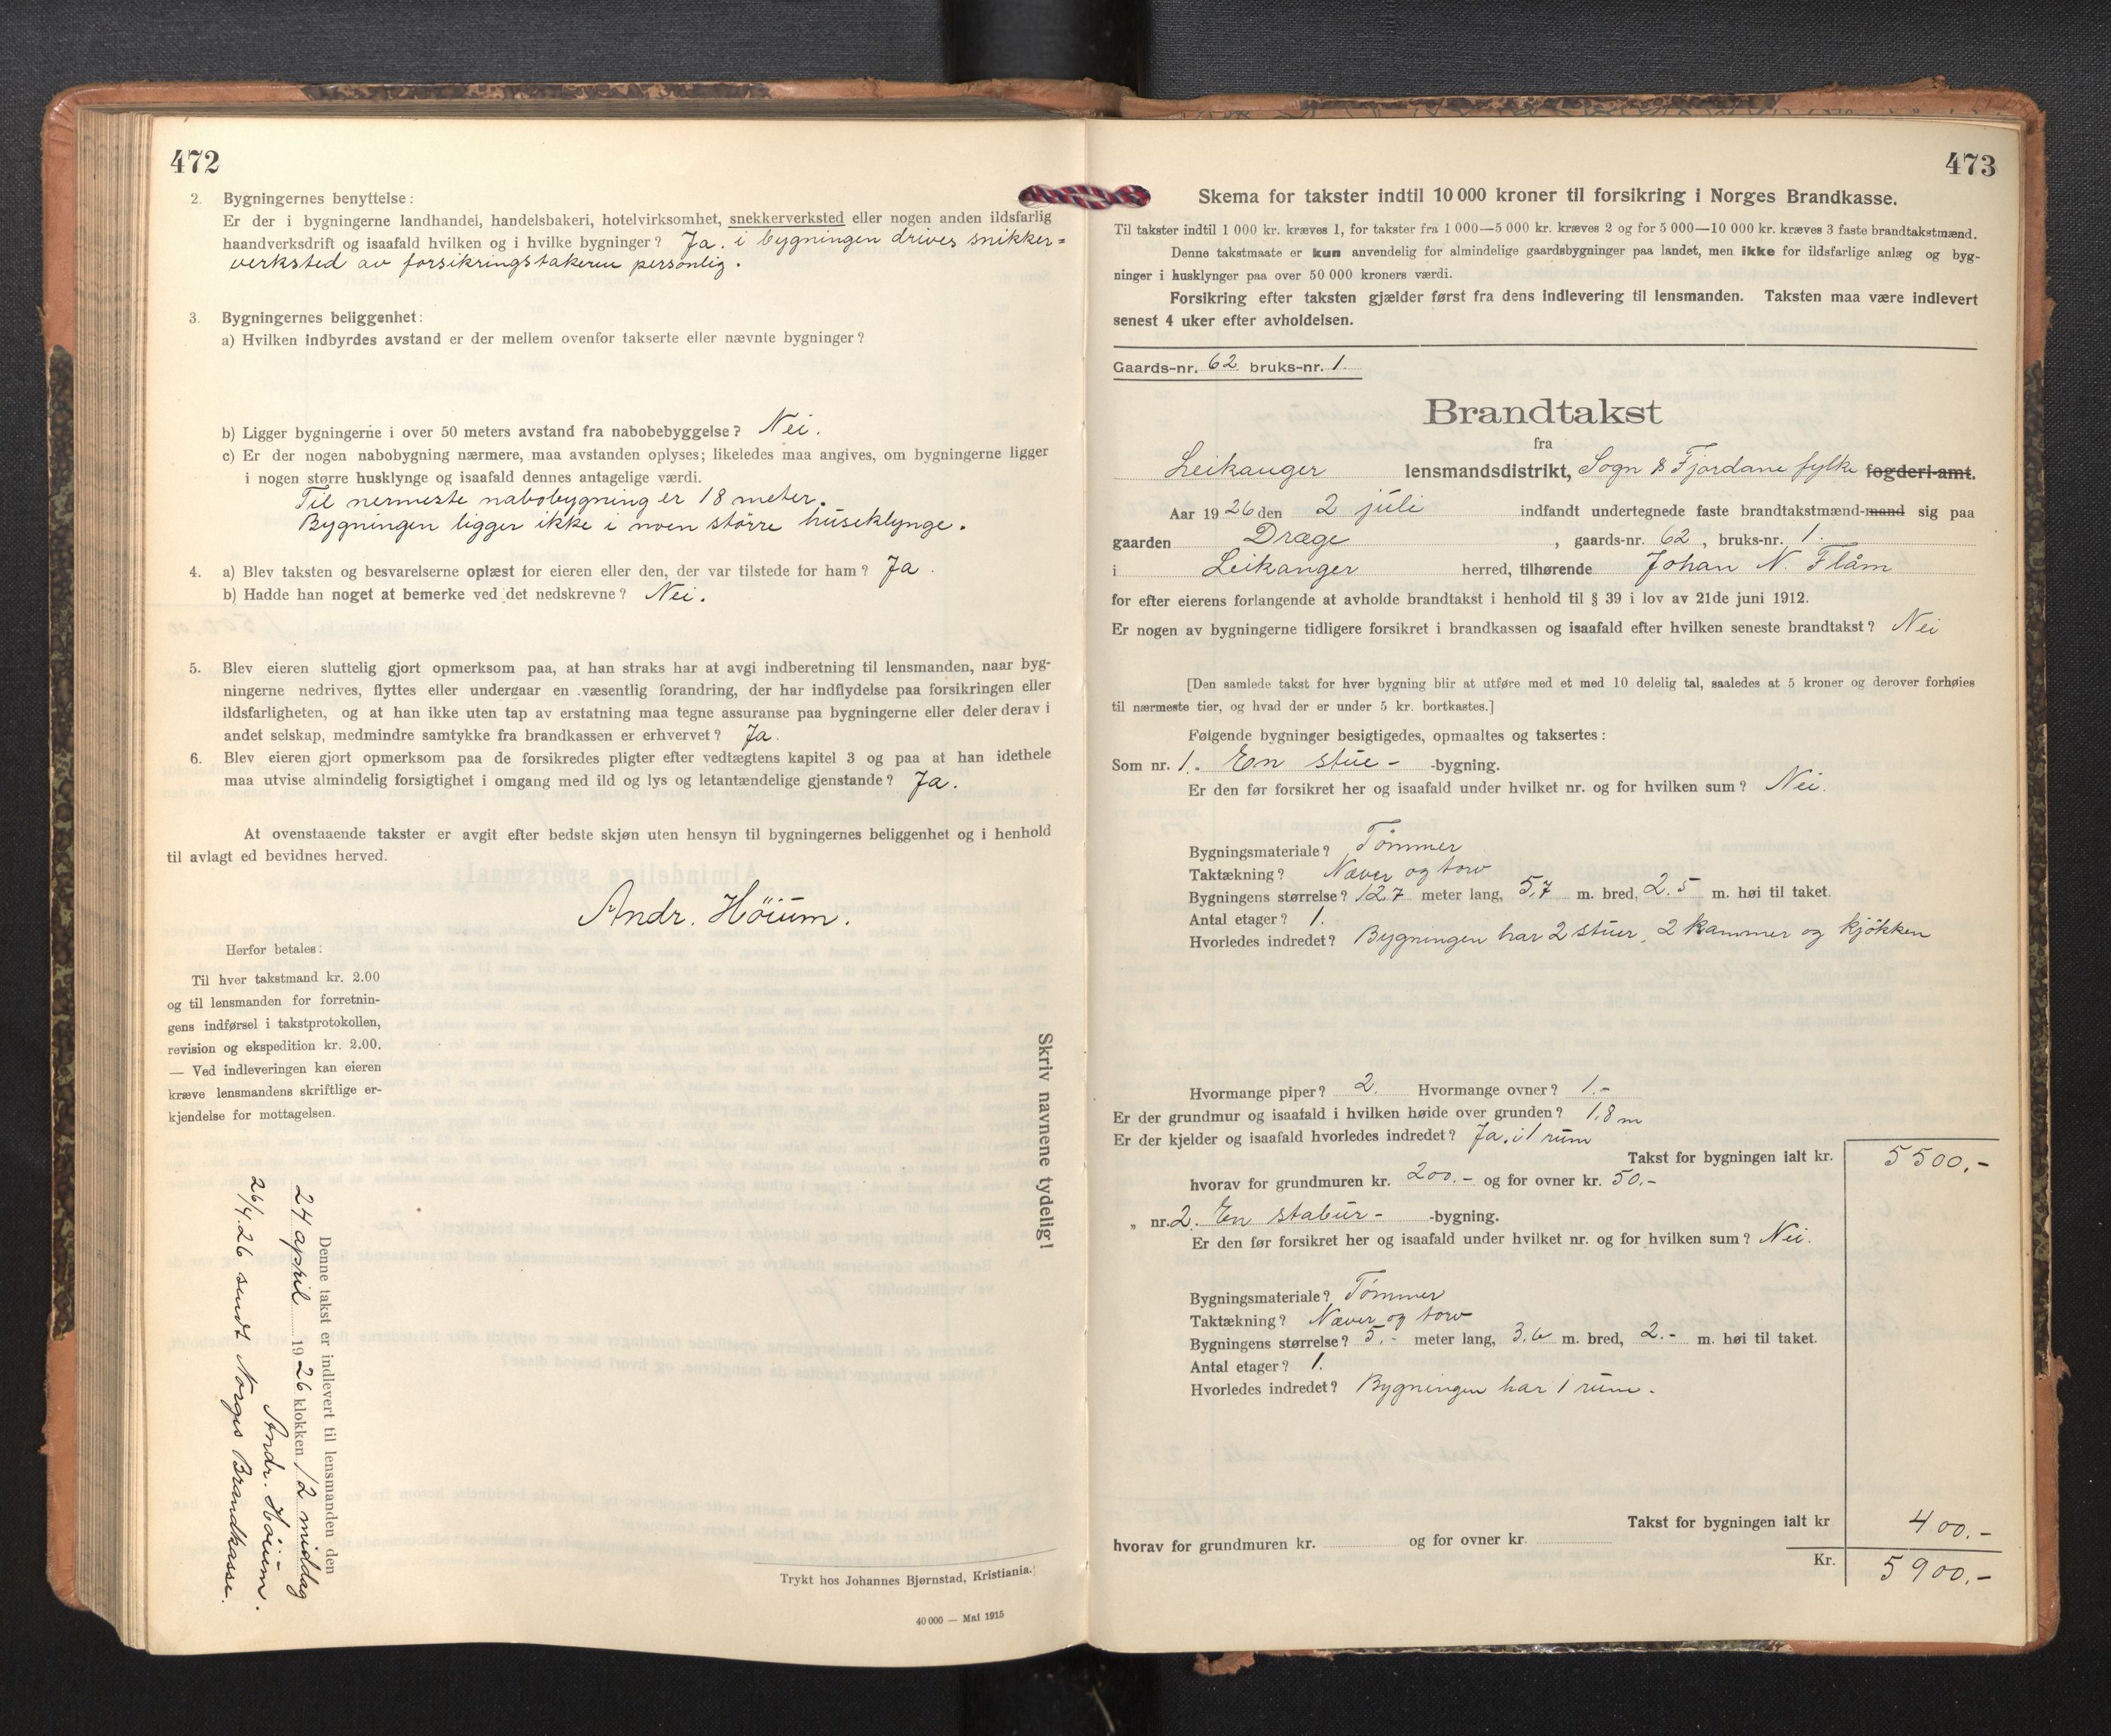 472
2. Bygningernes benyttelse:
Er der i bygningerne landhandel, handelsbakeri, hotelvirksomhet, snekkerverksted eller nogen anden ildsfarlig
haandverksdrift og isaafald hvilken og i hvilke bygninger? Ja. i bygningen drives snikker=
verksted av forsikringstakeren personlig.
3. Bygningernes beliggenhet:
a) Hvilken indbyrdes avstand er der mellem ovenfor takserte eller nævnte bygninger?
b) Ligger bygningerne i over 50 meters avstand fra nabobebyggelse? Nei.
c) Er der nogen nabobygning nærmere, maa avstanden oplyses; likeledes maa angives, om bygningerne ligger
i nogen større husklynge og isaafald dennes antagelige værdi.
Til nermeste nabobygning er 18 meter.
Bygningen ligger ikke i noen større huseklynge.
4. a) Blev taksten og besvarelserne oplæst for eieren eller den, der var tilstede for ham? Ja.
b) Hadde han noget at bemerke ved det nedskrevne? Nei.
5. Blev eieren sluttelig gjort opmerksom paa, at han straks har at avgi indberetning til lensmanden, naar byg-
ningerne nedrives, flyttes eller undergaar en væsentlig forandring, der har indflydelse paa forsikringen eller
ildsfarligheten, og at han ikke uten tap av erstatning maa tegne assuranse paa bygningerne eller deler derav i
andet selskap, medmindre samtykke fra brandkassen er erhvervet? Ja.
6. Blev eieren gjort opmerksom paa de forsikredes pligter efter vedtægtens kapitel 3 og paa at han idethele
maa utvise almindelig forsigtighet i omgang med ild og lys og letantændelige gjenstande? Ja.
At ovenstaaende takster er avgit efter bedste skjøn uten hensyn til bygningernes beliggenhet og i henhold
til avlagt ed bevidnes herved.
Andr. Höium.
Herfor betales:
Til hver takstmand kr. 2.00
og til lensmanden for forretnin-
gens indførsel i takstprotokollen,
revision og ekspedition kr. 2.00.
— Ved indleveringen kan eieren
kræve lensmandens skriftlige er-
kjendelse for mottagelsen.
Skriv navnene tydelig!
Denne takst er indlevert til lensmanden den
24 april 1926 klokken 12 middag
Andr. Höium.
26/4.26 sendt Norges Brandkasse.
Trykt hos Johannes Bjørnstad, Kristiania.
40 000 — Mai 1915
473
Skema for takster indtil 10 000 kroner til forsikring i Norges Brandkasse.
Til takster indtil 1 000 kr. kræves 1, for takster fra 1 000—5 000 kr. kræves 2 og for 5 000—10 000 kr. kræves 3 faste brandtakstmænd.
Denne takstmaate er kun anvendelig for almindelige gaardsbygninger paa landet, men ikke for ildsfarlige anlæg og byg-
ninger i husklynger paa over 50 000 kroners værdi.
Forsikring efter taksten gjælder først fra dens indlevering til lensmanden. Taksten maa være indlevert
senest 4 uker efter avholdelsen.
Gaards-nr. 62 bruks-nr. 1.
Brandtakst
fra
Leikanger lensmandsdistrikt, Sogn & Fjordane fylke fogderi-amt.
Aar 1926 den 2 juli indfandt undertegnede faste brandtakstmænd-mand sig paa
gaarden Dræge, gaards-nr. 62, bruks-nr. 1.
i Leikanger herred, tilhørende Johan N. Flåm
for efter eierens forlangende at avholde brandtakst i henhold til § 39 i lov av 21de juni 1912.
Er nogen av bygningerne tidligere forsikret i brandkassen og isaafald efter hvilken seneste brandtakst? Nei
[Den samlede takst for hver bygning blir at utføre med et med 10 delelig tal, saaledes at 5 kroner og derover forhøies
til nærmeste tier, og hvad der er under 5 kr. bortkastes.]
Følgende bygninger besigtigedes, opmaaltes og taksertes:
Som nr. 1. En stue- -bygning.
Er den før forsikret her og isaafald under hvilket nr. og for hvilken sum? Nei.
Bygningsmateriale? Tömmer
Taktækning? Næver og torv
Bygningens størrelse? 12.7 meter lang, 5,7 m. bred, 2.5 m. høi til taket.
Antal etager? 1.
Hvorledes indredet? Bygningen har 2 stuer, 2 kammer og kjökken
Hvormange piper? 2. Hvormange ovner? 1.-
Er der grundmur og isaafald i hvilken høide over grunden? 1.8 m
Er der kjelder og isaafald hvorledes indredet? Ja. i 1 rum
Takst for bygningen ialt kr. 5500.-
hvorav for grundmuren kr. 200.- og for ovner kr. 50.-
„ nr. 2. En stabur- -bygning.
Er den før forsikret her og isaafald under hvilket nr. og for hvilken sum? Nei.
Bygningsmateriale? Tömmer
Taktækning? Næver og torv
Bygningens størrelse? 5.- meter lang, 3.6 m. bred, 2.- m. høi til taket.
Antal etager? 1.
Hvorledes indredet? Bygningen har 1 rum.
Takst for bygningen ialt kr 400.-
hvorav for grundmuren kr. og for ovner kr.
Kr. 5900.-